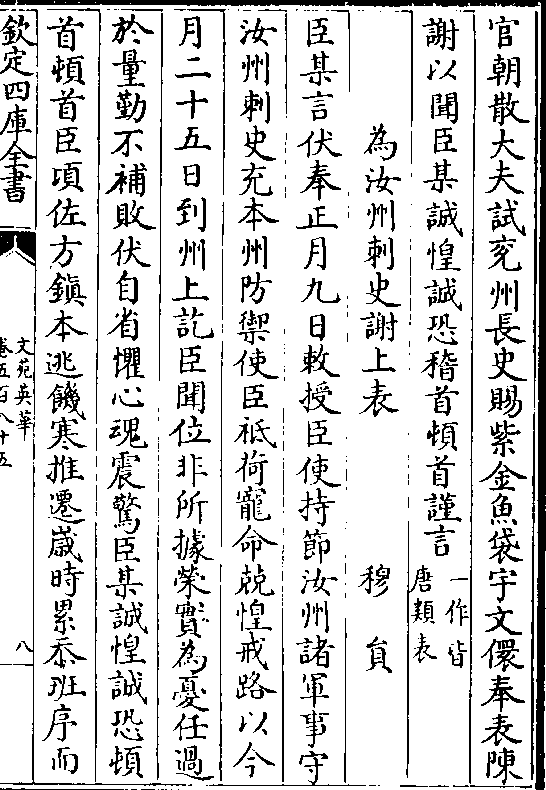 官朝散大夫試兖州長史賜紫金魚袋宇文儇奉表陳
謝以聞臣某誠惶誠恐稽首頓首謹言一作皆唐類表
為汝州刺史謝上表 穆員
臣某言伏奉正月九日敕授臣使持節汝州諸軍事守
汝州刺史充本州防禦使臣祗荷寵命兢惶戒路以今
月二十五日到州上訖臣聞位非所據榮實為憂任過
於量勤不補敗伏自省懼心魂震驚臣某誠惶誠恐頓
首頓首臣頃佐方鎮本逃饑寒推遷嵗時累忝班序而
欽定四庫全書
文苑英華
卷五百八十五
八